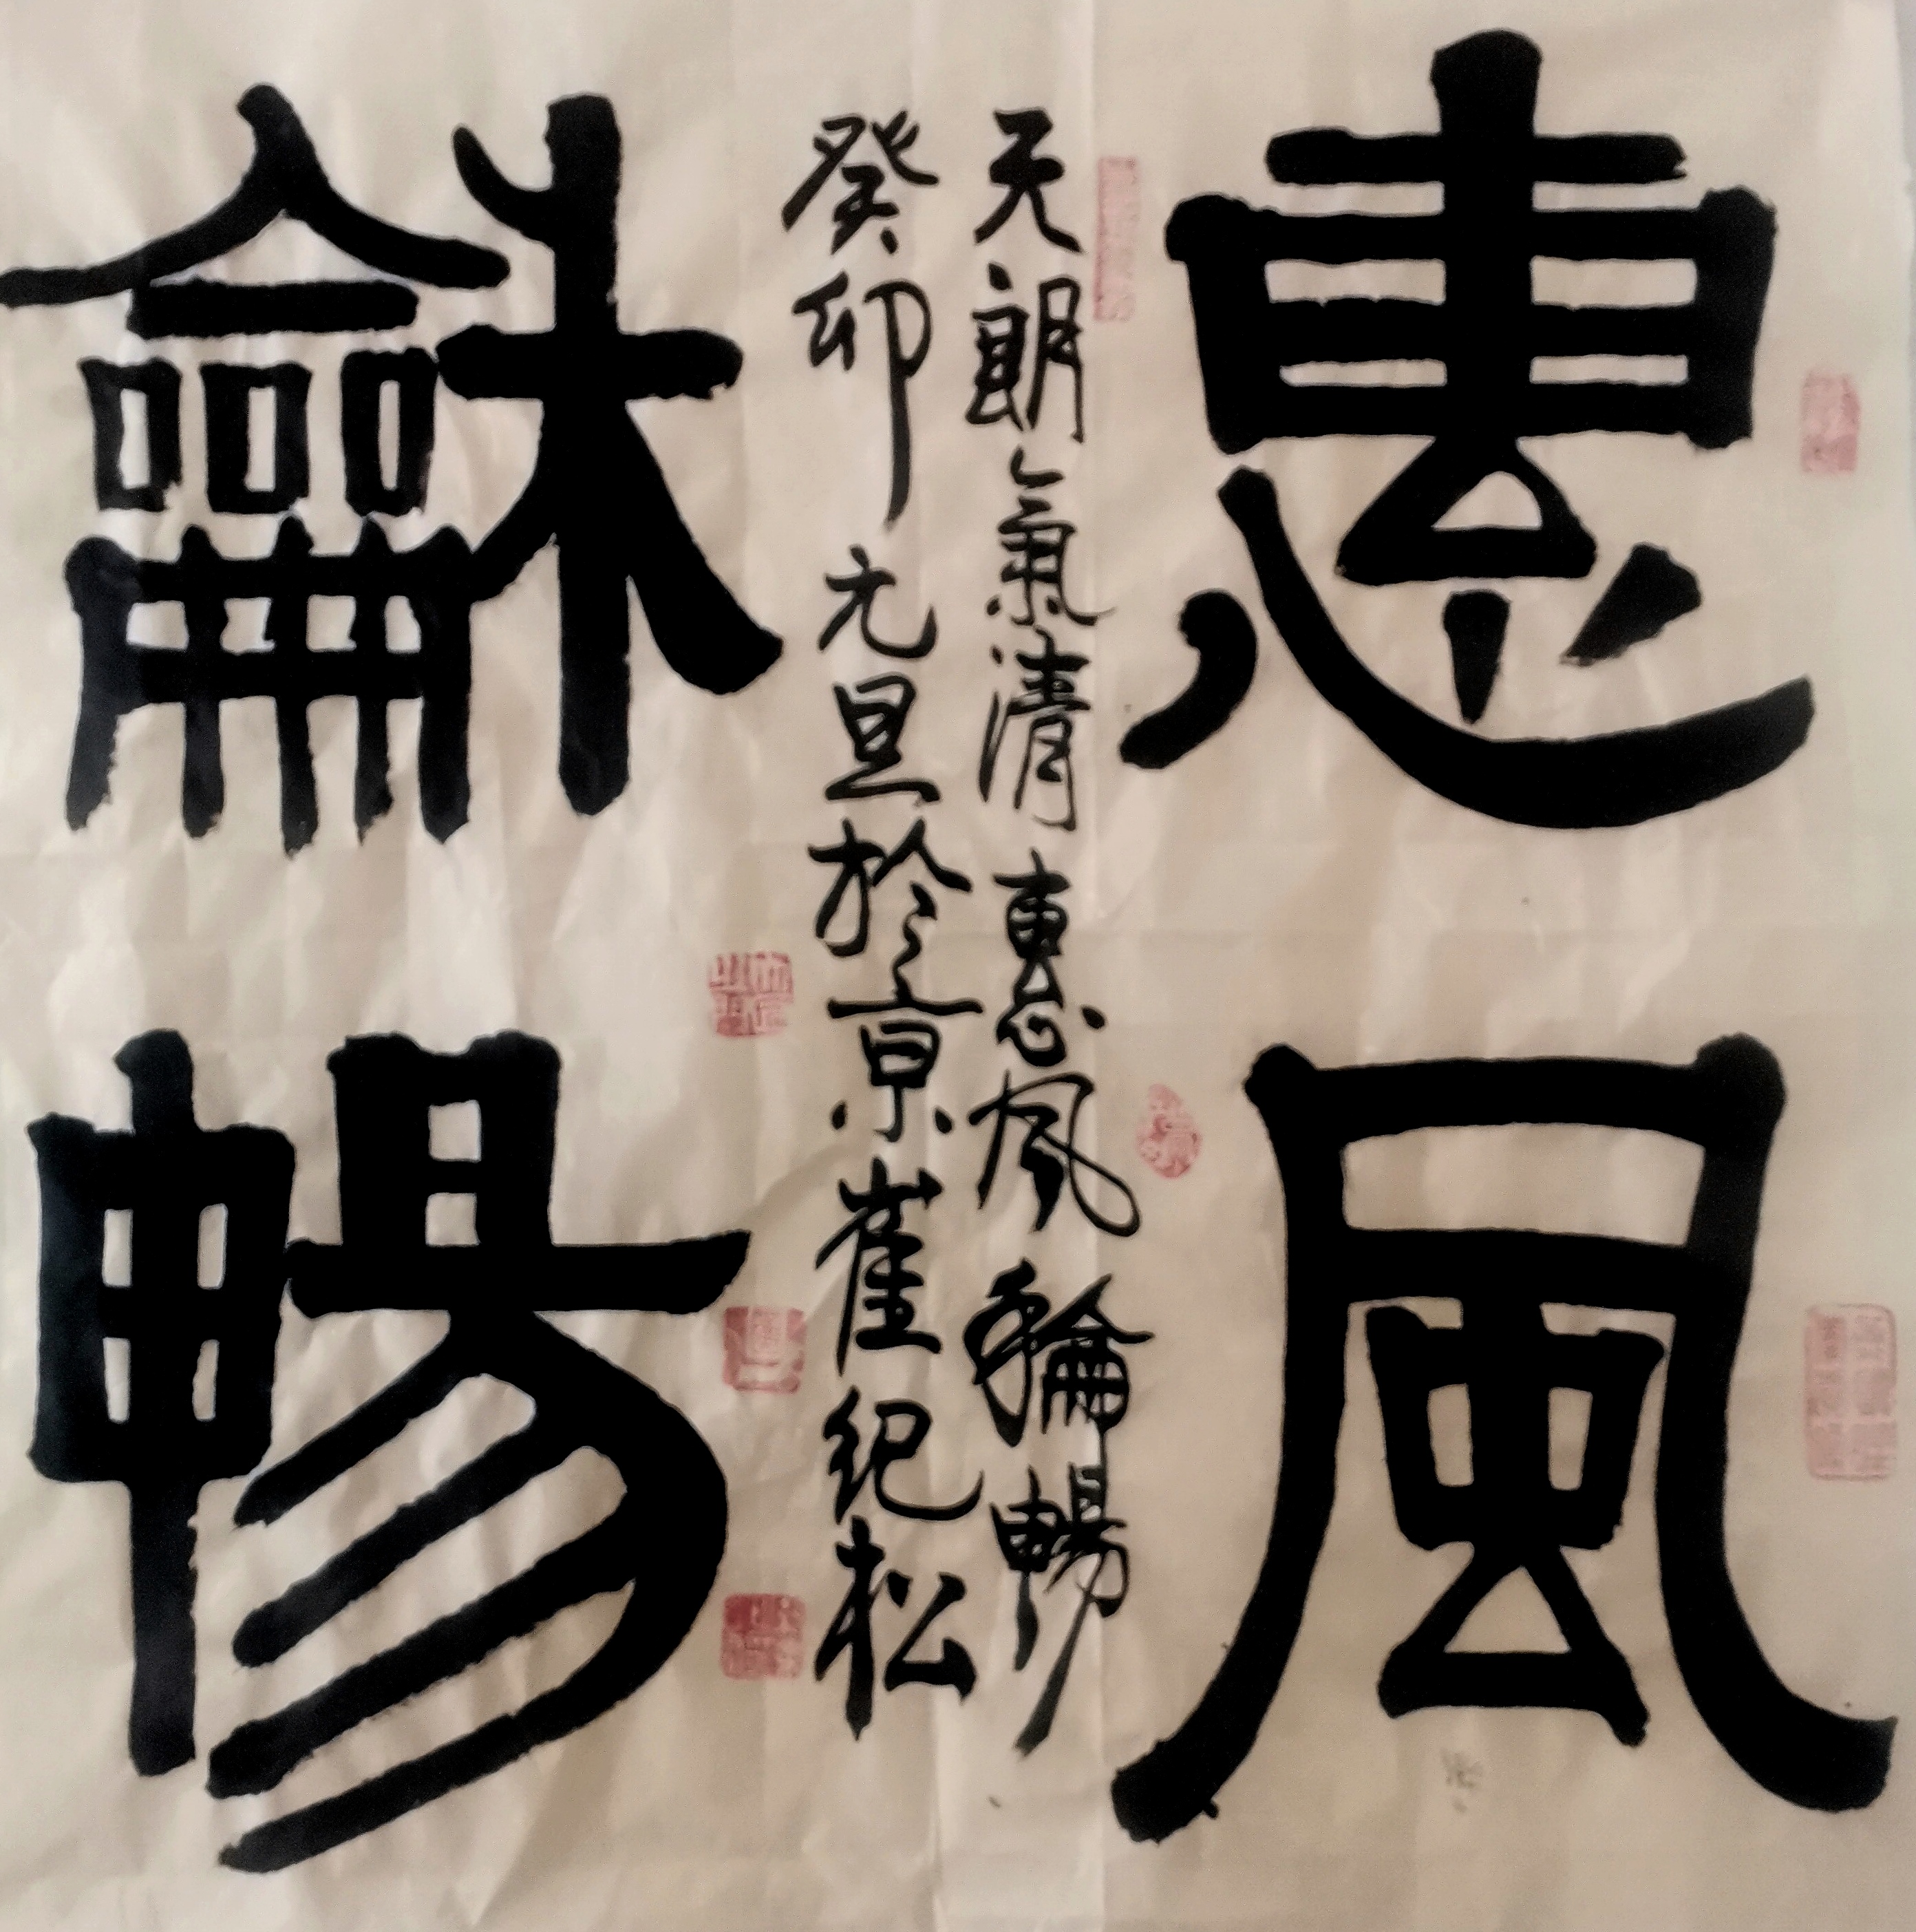 惠風
天朗氣清惠風龢暢
癸卯元旦於京崔纪松
龢暢